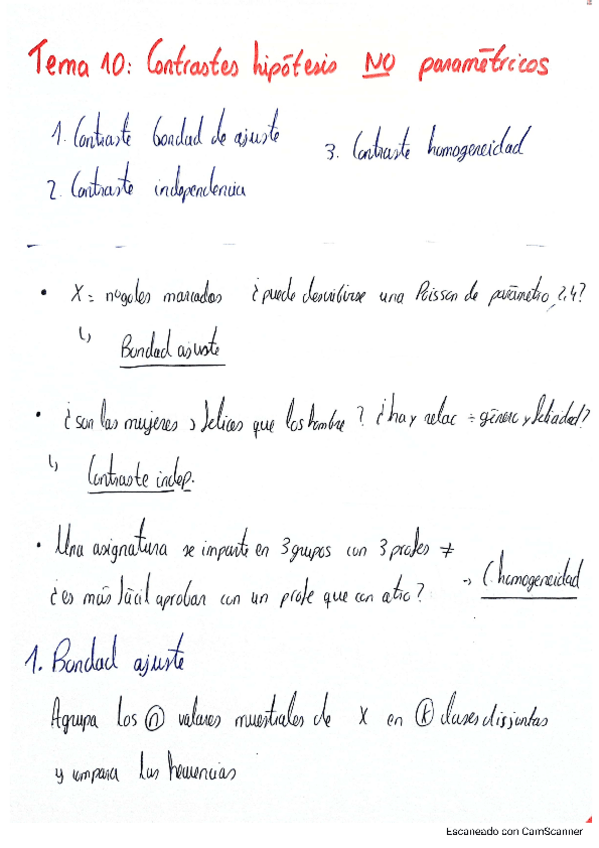 Tema 10: Contrastes hipótesis NO paramétricos
1. Contraste bondad de ajuste
3. Contraste homogeneidad
2. Contraste independencia
• X = nogales marcados ¿puede describirse una Poisson de parámetro 2,4?
↳ Bondad ajuste
• ¿son las mujeres > felices que los hombre? ¿hay relac ÷ género y felicidad?
↳ Contraste indep.
• Una asignatura se imparte en 3 grupos con 3 profes ≠
¿es más fácil aprobar con un profe que con otro? → C. homogeneidad
1. Bondad ajuste
Agrupa los n valores muestrales de X en k clases disjuntas
y compara las frecuencias
Escaneado con CamScanner